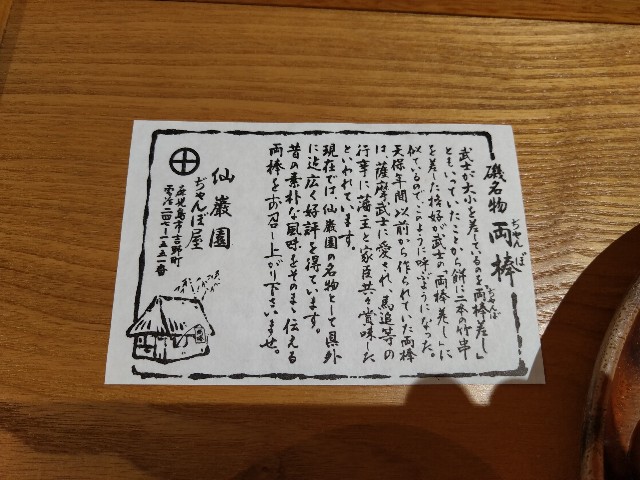 磯名物 両棒
ぢゃんぼ
武士が大小を差しているのを「両棒差し」
ぢゃんぼ
ともいっていたことから餅に二本の竹串
を差した格好が武士の「両棒差し」に
似ているのでこのように呼ぶようになった。
天保年間以前から作られていた両棒
は、薩摩武士に愛され、馬追等の
行幸に藩主と家臣共々賞味した
といわれています。
現在では仙巌園の名物として県外
に迄広く好評を得ています。
昔の素朴な風味をそのまゝ伝える
両棒をお召し上がり下さいませ。
仙巌園
ぢゃんぼ屋
鹿児島市吉野町
電治二四七-一五五一番